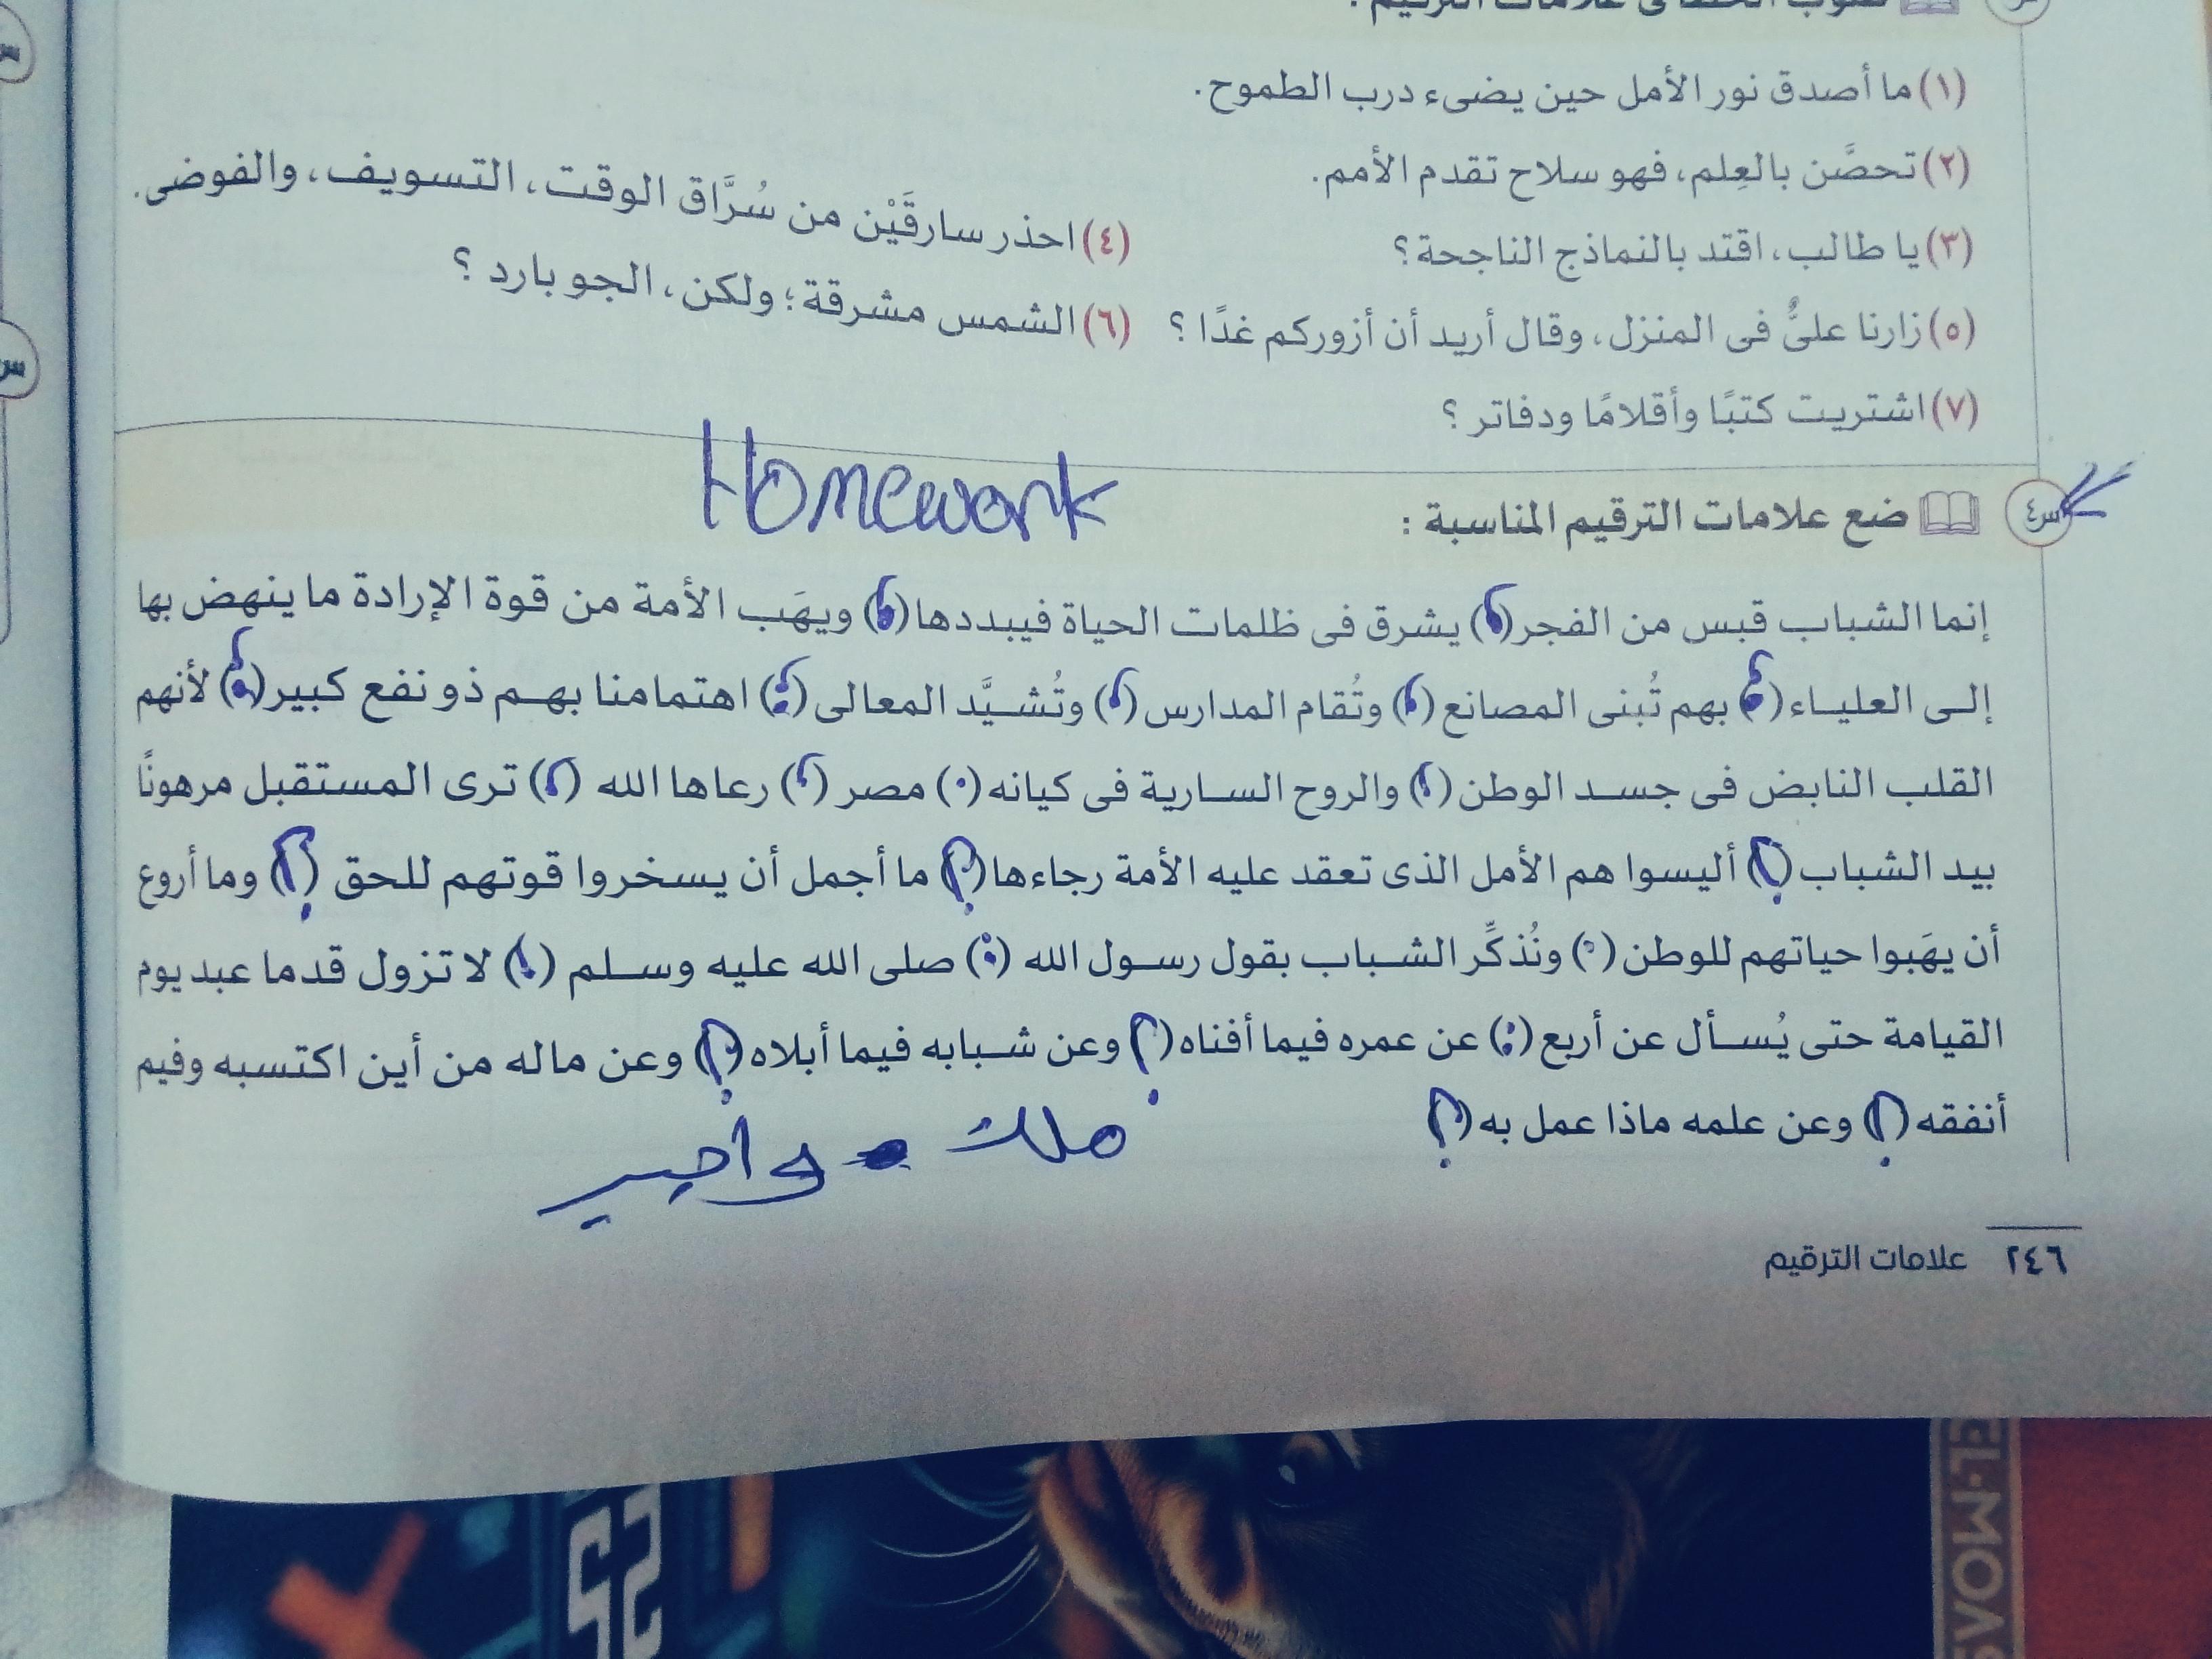 صوب الخطأ فى علامات الترقيم :
(١) ما أصدق نور الأمل حين يضىء درب الطموح.
(٢) تحصَّن بالعِلم، فهو سلاح تقدم الأمم.
(٣) يا طالب، اقتد بالنماذج الناجحة؟
(٤) احذر سارقَيْن من سُرَّاق الوقت، التسويف، والفوضى.
(٥) زارنا علىٌّ فى المنزل، وقال أريد أن أزوركم غدًا ؟
(٦) الشمس مشرقة؛ ولكن، الجو بارد ؟
(٧) اشتريت كتبًا وأقلامًا ودفاتر ؟
Homework
س٤ ضع علامات الترقيم المناسبة :
إنما الشباب قبس من الفجر(،) يشرق فى ظلمات الحياة فيبددها(،) ويهَب الأمة من قوة الإرادة ما ينهض بها
إلى العلياء(؛) بهم تُبنى المصانع(،) وتُقام المدارس(،) وتُشيَّد المعالى(؛) اهتمامنا بهم ذو نفع كبير(؛) لأنهم
القلب النابض فى جسد الوطن(،) والروح السارية فى كيانه(.) مصر(،) رعاها الله (،) ترى المستقبل مرهونًا
بيد الشباب(؟) أليسوا هم الأمل الذى تعقد عليه الأمة رجاءها(؟) ما أجمل أن يسخروا قوتهم للحق (؟) وما أروع
أن يهَبوا حياتهم للوطن(.) ونُذكِّر الشباب بقول رسول الله (:) صلى الله عليه وسلم (،) لا تزول قدما عبد يوم
القيامة حتى يُسأل عن أربع(:) عن عمره فيما أفناه(؟) وعن شبابه فيما أبلاه(؟) وعن ماله من أين اكتسبه وفيم
أنفقه(؟) وعن علمه ماذا عمل به(؟)
٢٤٦ علامات الترقيم